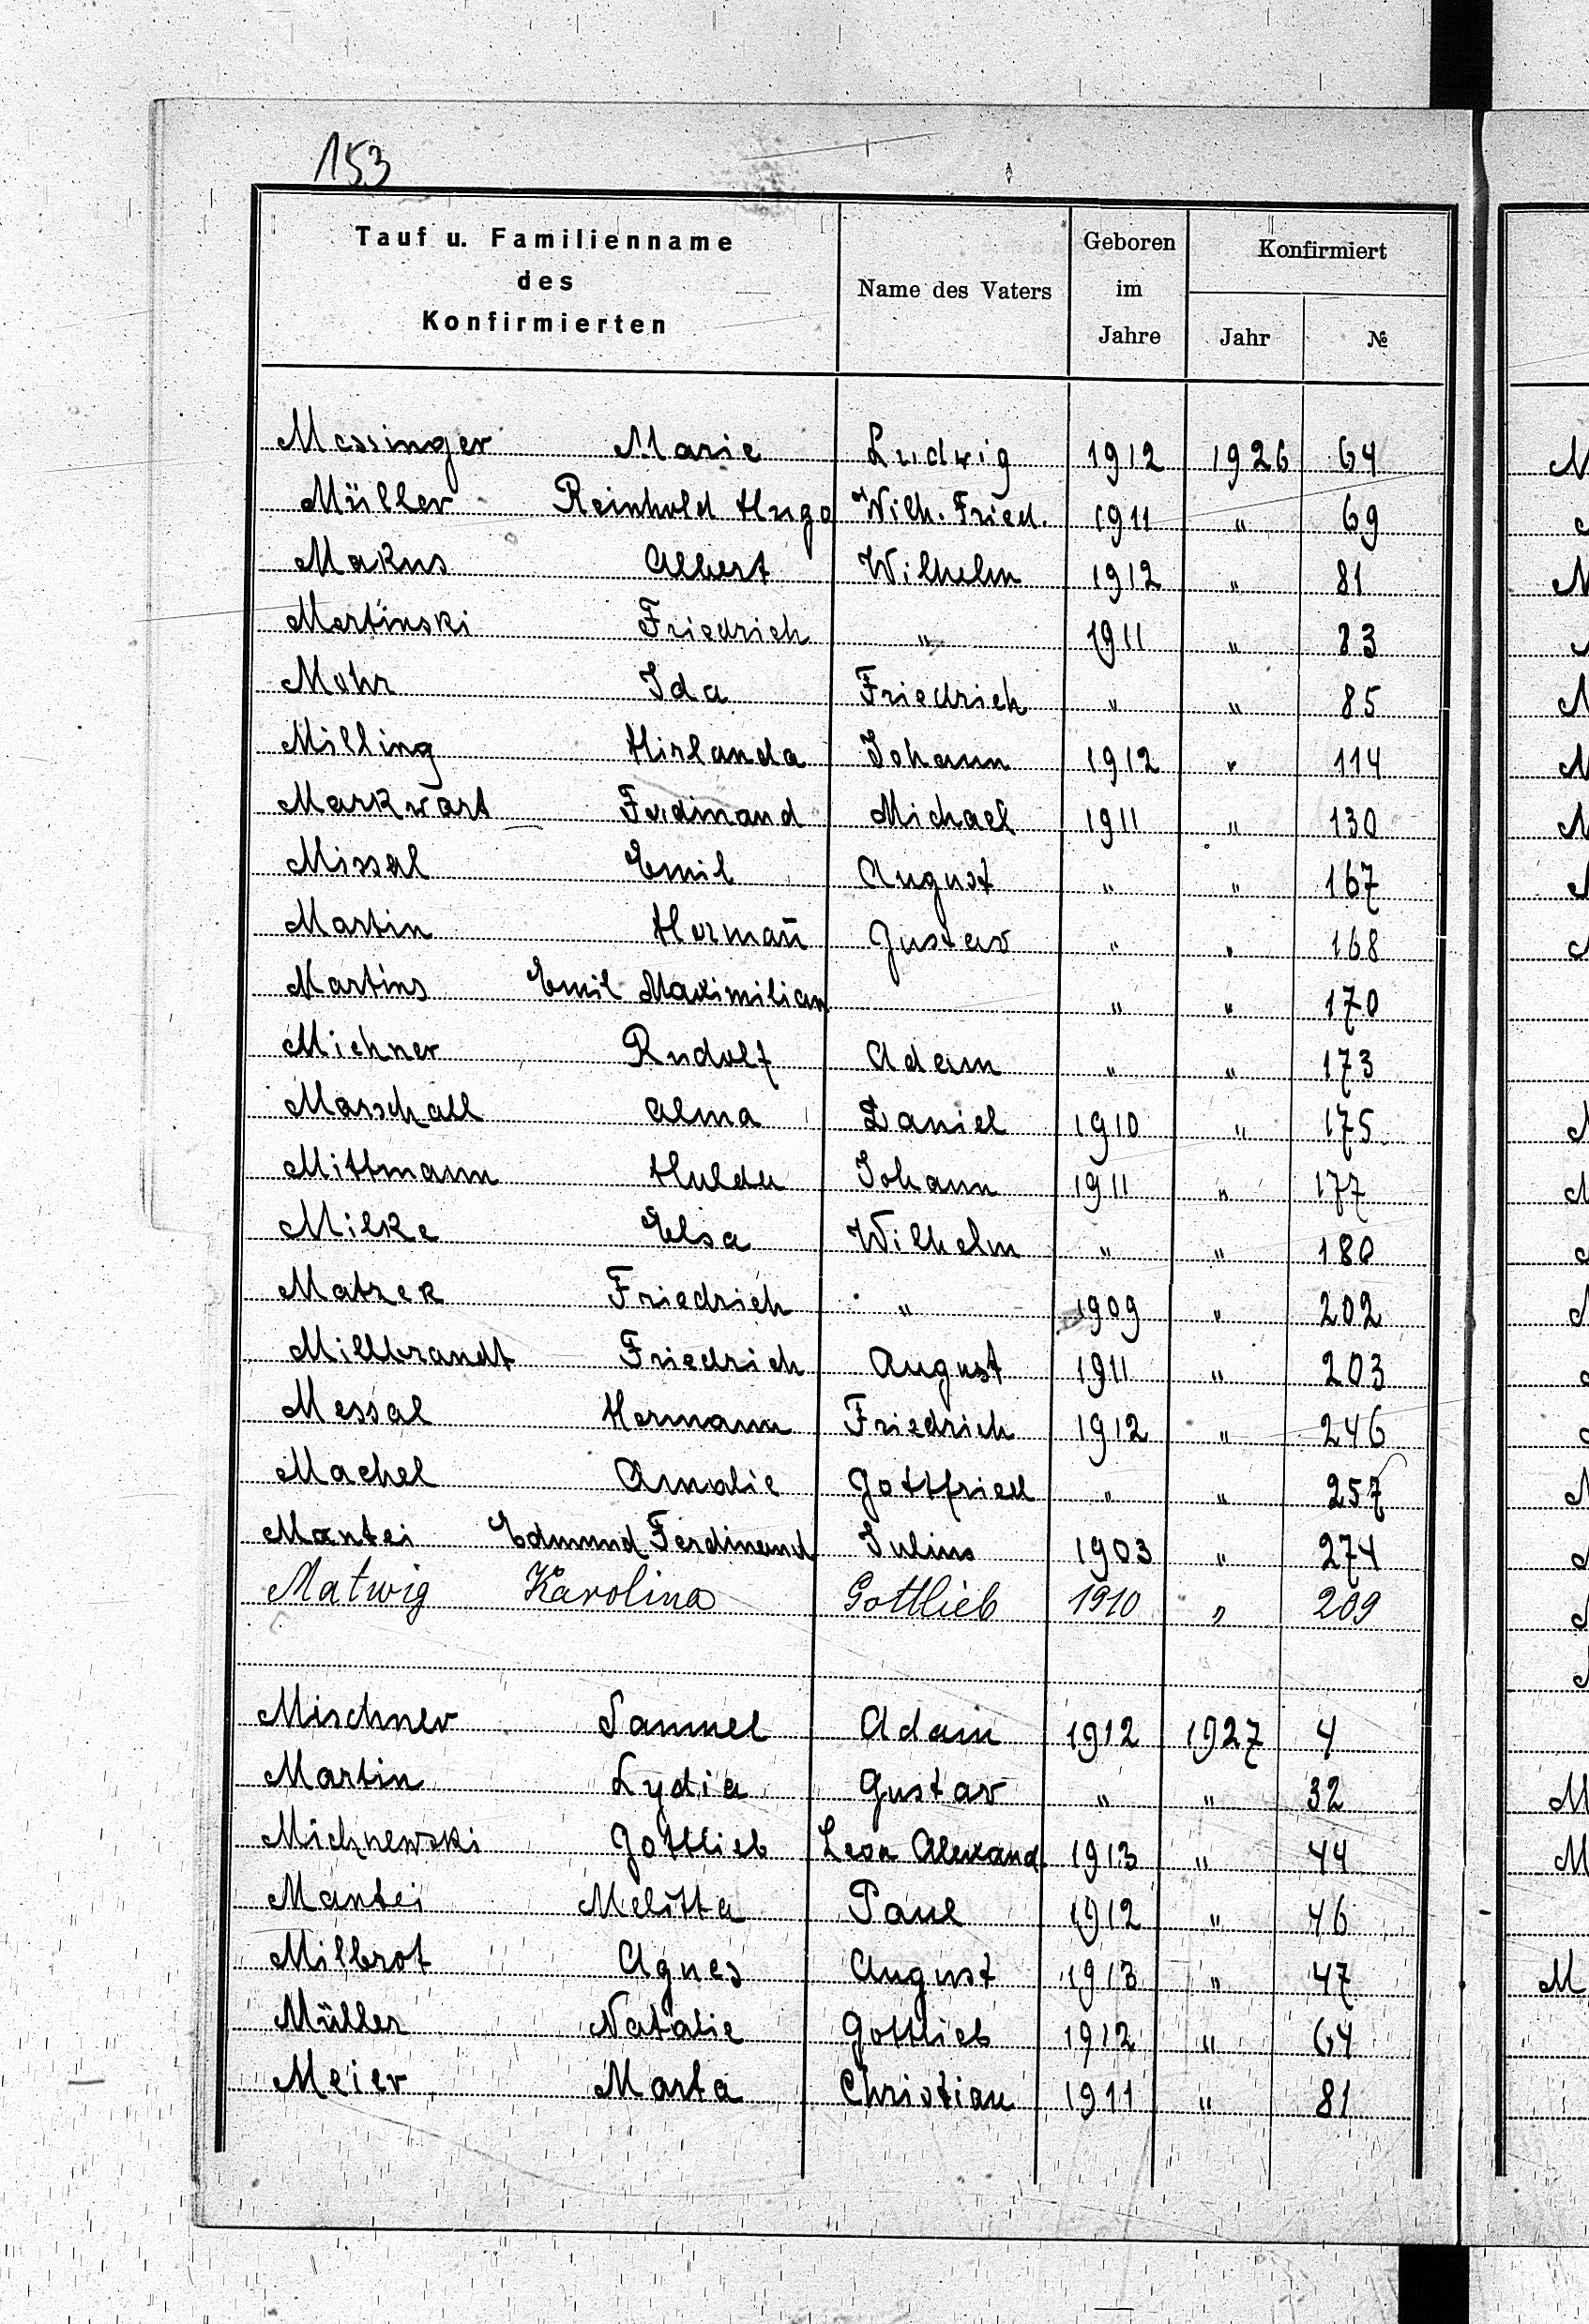 153
Tauf u. Familienname des Konfirmierten | Name des Vaters | Geboren im Jahre | Konfirmiert Jahr | №
Messinger Marie Ludwig 1912 1926 64
Müller Reinhold Hugo Wilh. Fried. 1911 " 69
Makus Albert Wilhelm 1912 " 81
Martinski Friedrich " 1911 " 83
Mohr Ida Friedrich " " 85
Milling Hirlanda Johann 1912 " 114
Markwart Ferdinand Michael 1911 " 130
Missal Emil August " " 167
Martin Hermañ Gustav " " 168
Martins Emil Maximilian " " 170
Michner Rudolf Adam " " 173
Marschall Alma Daniel 1910 " 175
Mittmann Hulda Johann 1911 " 177
Milke Elsa Wilhelm " " 180
Matzek Friedrich " 1909 " 202
Millbrandt Friedrich August 1911 " 203
Messal Hermann Friedrich 1912 " 246
Machel Amalie Gottfried " " 257
Mantei Edmund Ferdinand Julius 1903 " 274
Matwig Karolina Gottlieb 1910 " 209
Mischner Samuel Adam 1912 1927 4
Martin Lydia Gustav " " 32
Michnewski Gottlieb Leon Alexand. 1913 " 44
Mantei Melitta Paul 1912 " 46
Milbrot Agnes August 1913 " 47
Müller Natalie Gottlieb 1912 " 64
Meier Marta Christian 1911 " 81